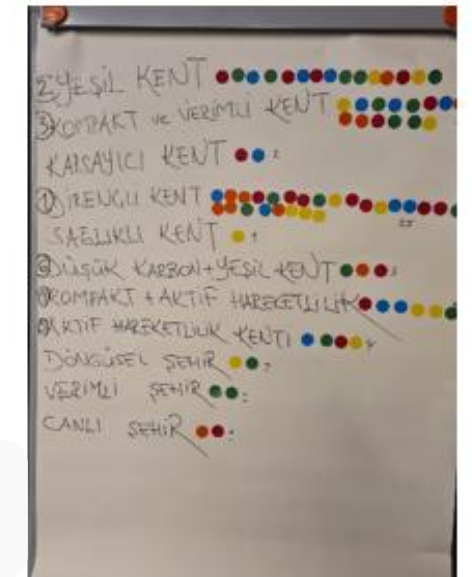 2 YEŞİL KENT
3 KOMPAKT ve VERİMLİ KENT
KAPSAYICI KENT 2
1 DİRENÇLİ KENT
25
SAĞLIKLI KENT 1
DÜŞÜK KARBON + YEŞİL KENT 3
KOMPAKT + AKTİF HAREKETLİLİK
AKTİF HAREKETLİLİK KENTİ 4
DÖNGÜSEL ŞEHİR 2
VERİMLİ ŞEHİR 2
CANLI ŞEHİR